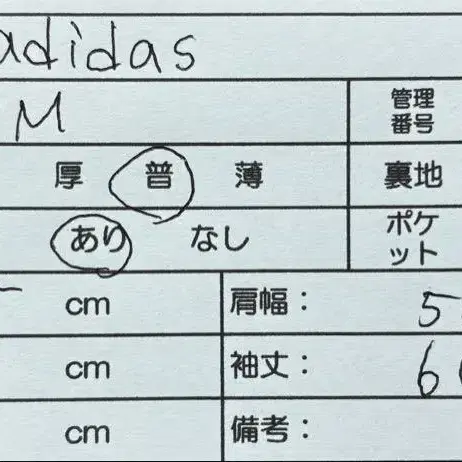 adidas
M 管理番号
厚 普 薄 裏地
あり なし ポケット
cm 肩幅： 5
cm 袖丈： 6
cm 備考：